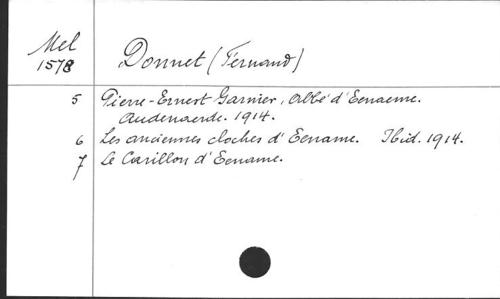 Mel
1578
Donnet (Fernand)
5 Pierre-Ernest Garnier, Abbé d'Eenaeme.
Audenaerde. 1914.
6 Les anciennes cloches d'Eename. Ibid. 1914.
7 Le Carillon d'Eename.